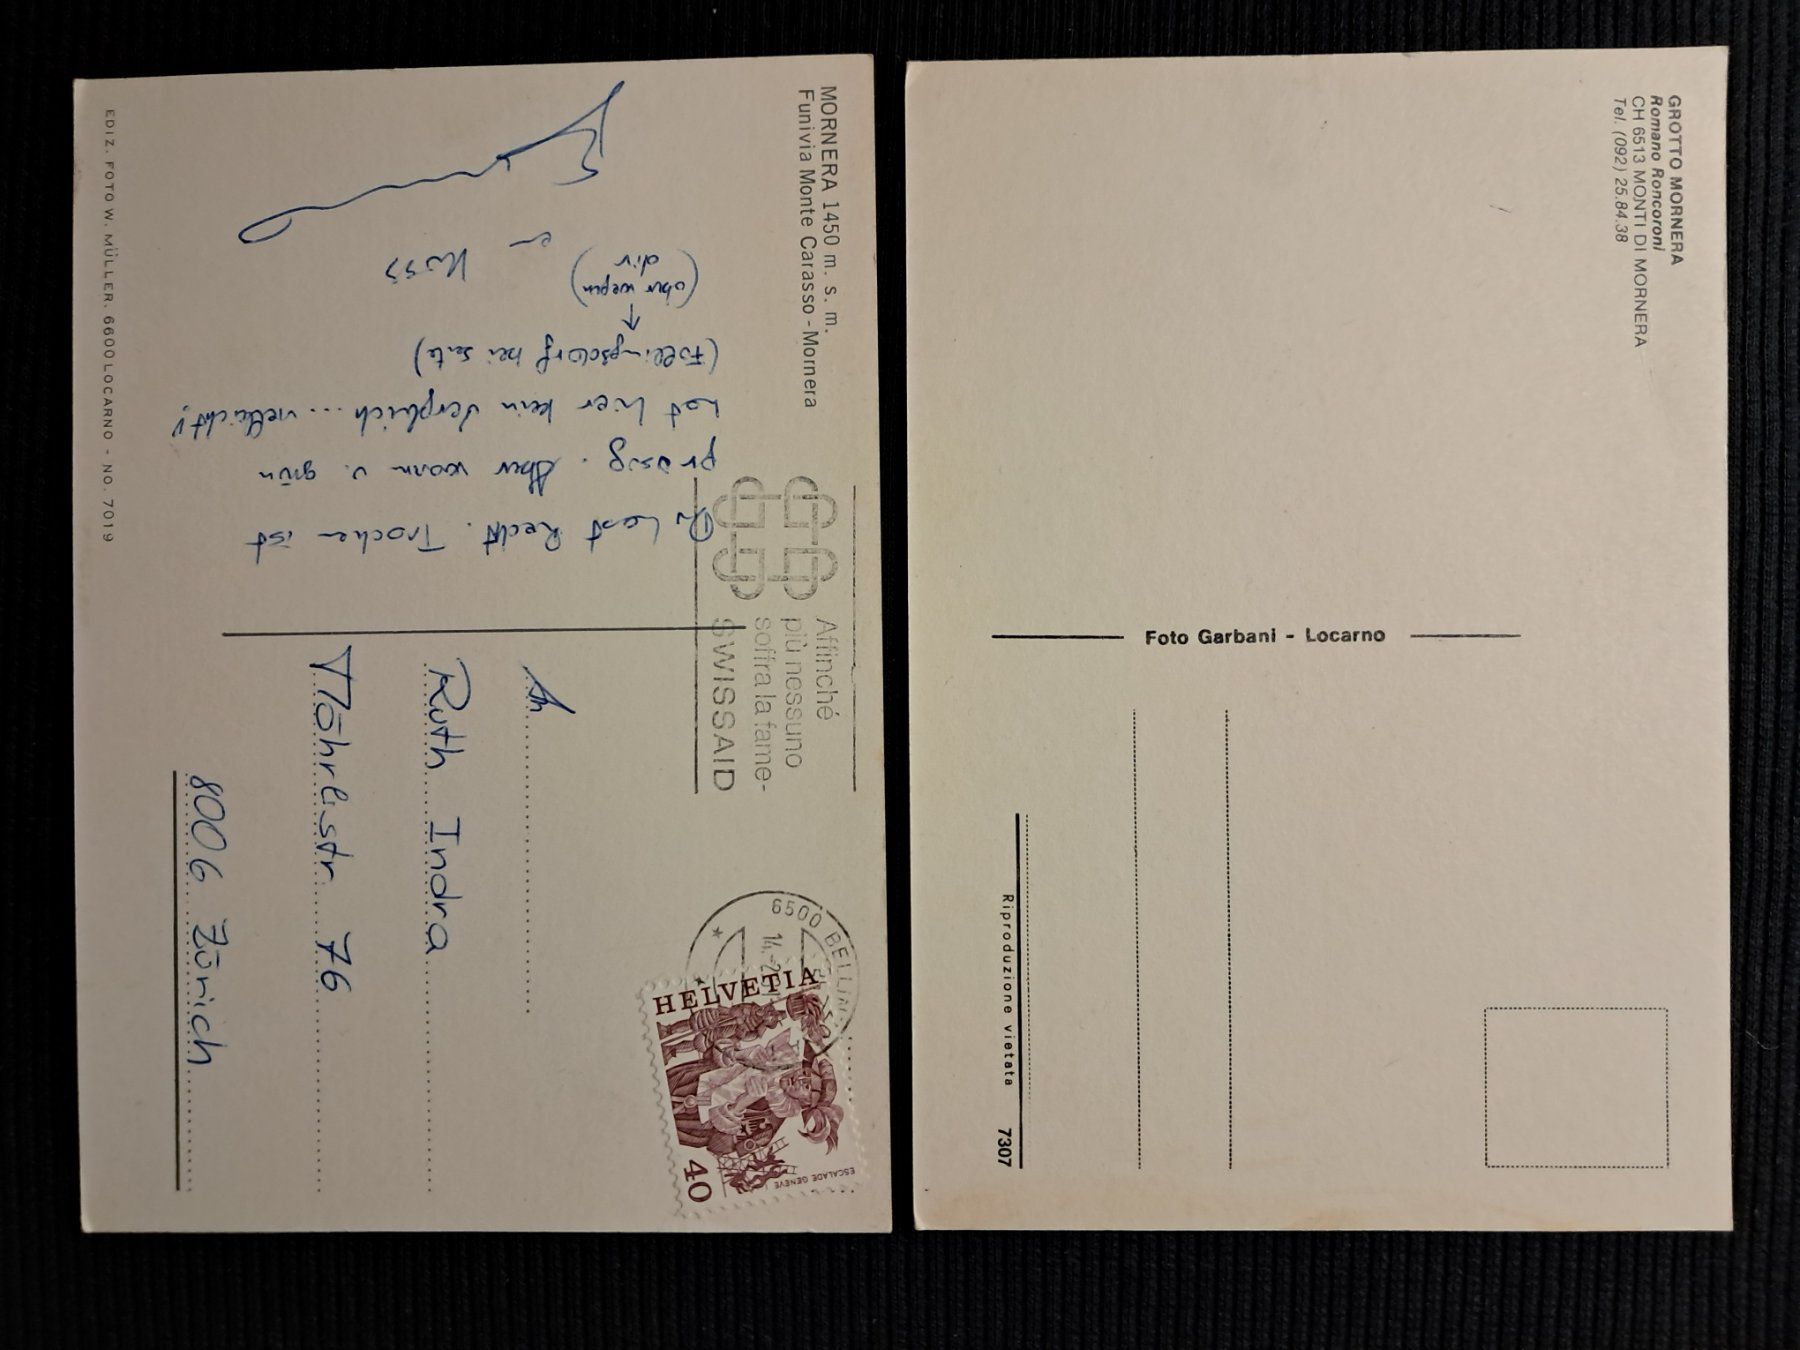 MORNERA 1450 m. s. m.
Funivia Monte Carasso - Mornera
Du hast Recht. Trocken ist
prosig. Aber warm u. grün
hat hier kein Vergleich ... vielleicht!
(Fellingsdorf bei Seite)
↑
(aber wegen
div)
Kuss
EDIZ. FOTO W. MÜLLER. 6600 LOCARNO - NO. 7019
Affinché
più nessuno
soffra la fame-
SWISSAID
6500 BELLIN
14.-2
HELVETIA
40
ESCALADE GENÈVE
An
Ruth Indra
Möhrlistr. 76
8006 Zürich
GROTTO MORNERA
Romano Roncoroni
CH 6513 MONTI DI MORNERA
Tel. (092) 25.84.38
Foto Garbani - Locarno
Riproduzione vietata 7307